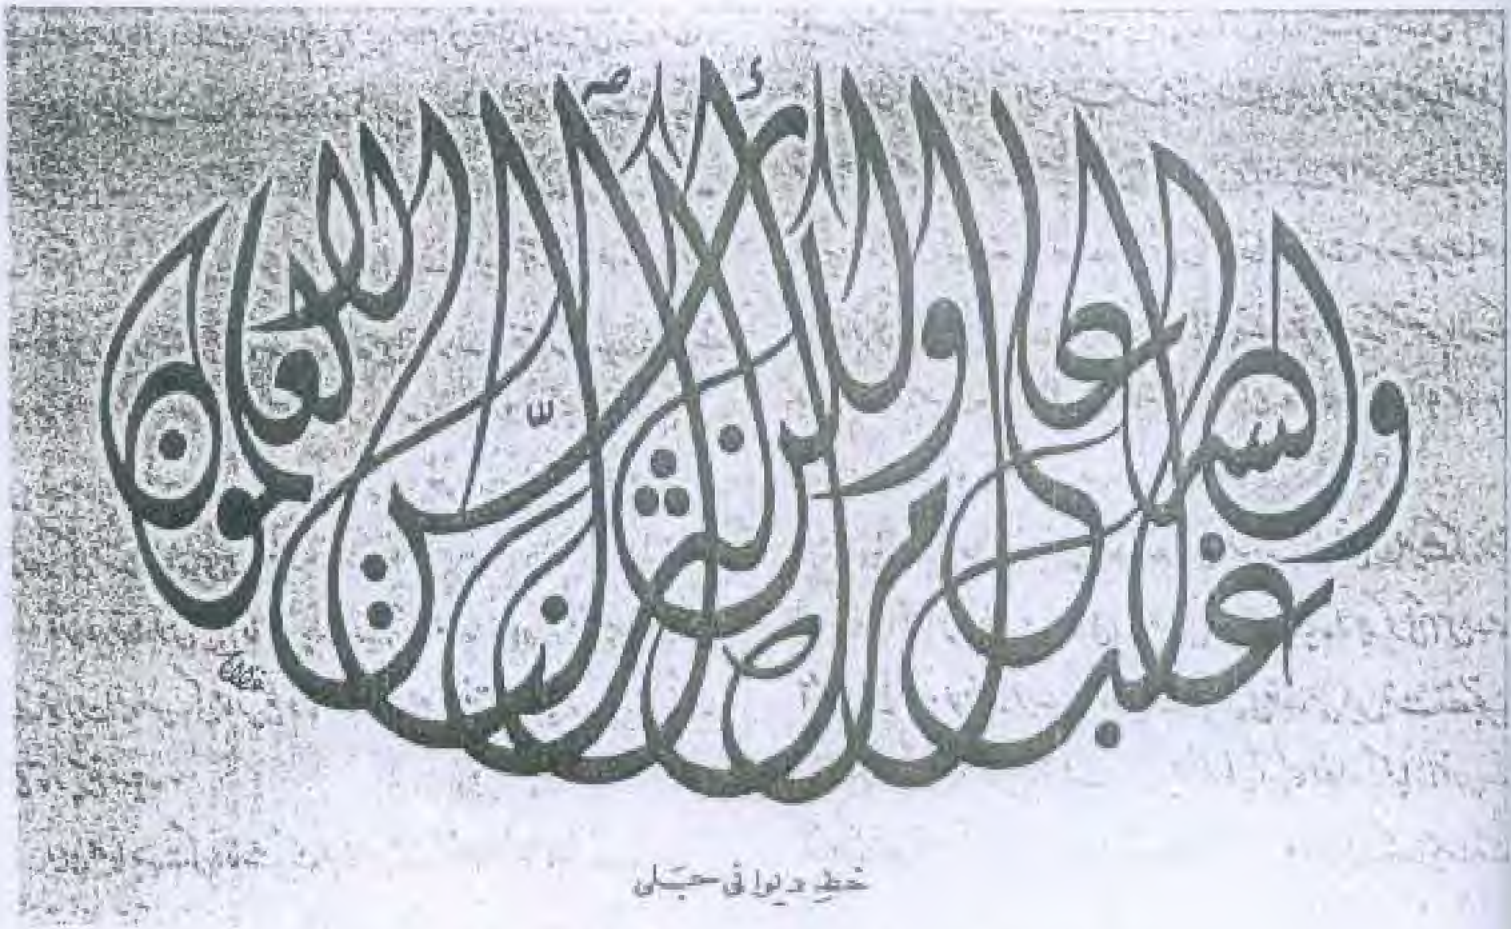 والله غالب على أمره ولكن أكثر الناس لا يعلمون
خط ديواني جلي